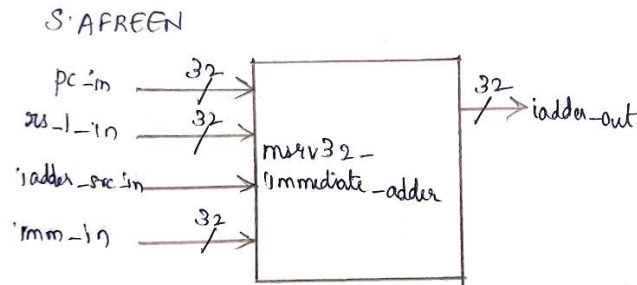 S.AFREEN
pc_in
32
rs_1_in
32
iadder_src_in
imm_in
32
msrv32_
immediate_adder
32
iadder_out